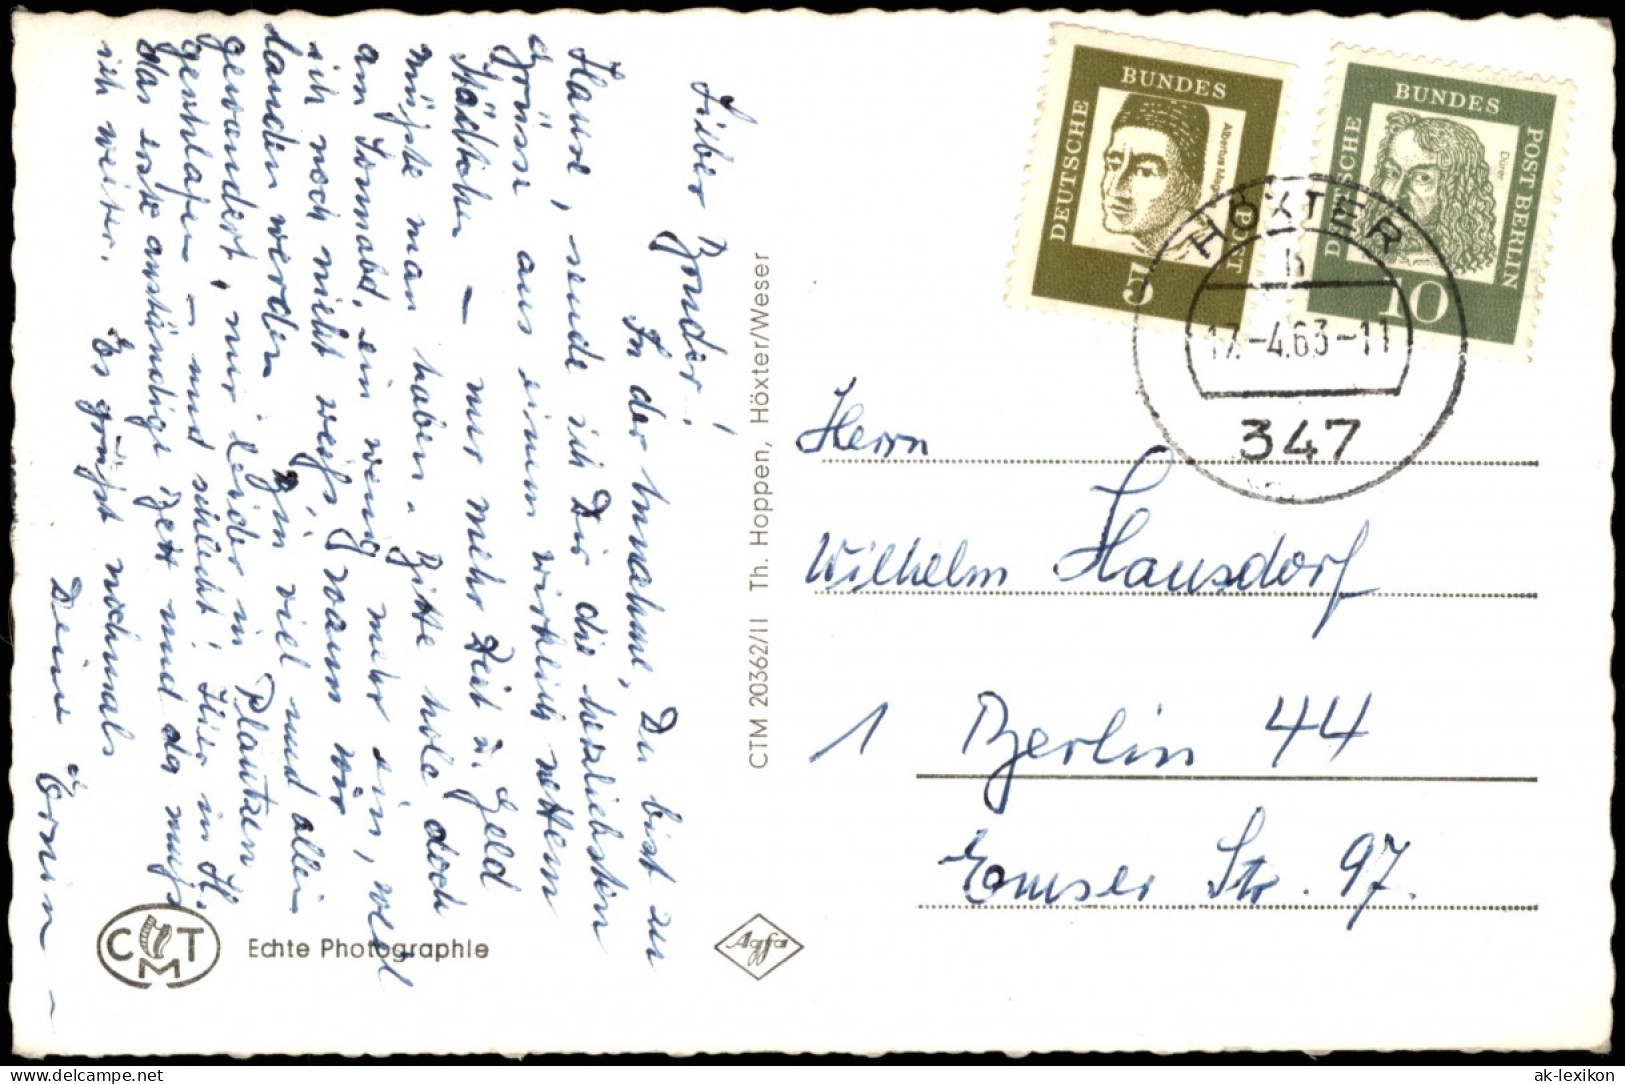 Lieber Bruder!
In der Annahme, Du bist zu
Hause, sende ich Dir die herzlichsten
Grüsse aus einem wirklich netten
Städtchen – nur mehr Zeit u. Geld
müsste man haben. Bitte hole doch
am Sonnabd. ein wenig mehr ein, weil
ich noch nicht weiß, wann wir
landen werden. Bin viel und allein
gewandert, nur leider in
geschlafen – und schlecht! Hier in H.
das erste anständige Bett und da muß
ich weiter. Es grüsst nochmals
Deine
CTM 20362/II Th. Hoppen, Höxter/Weser
CMT
Echte Photographie
Agfa
DEUTSCHE BUNDESPOST
Albertus Magnus
5
DEUTSCHE BUNDESPOST BERLIN
Dürer
10
HÖXTER
h
17.-4.63-11
347
Herrn
Wilhelm Hausdorf
1 Berlin 44
Emser Str. 97.
www.delcampe.net
ak-lexikon